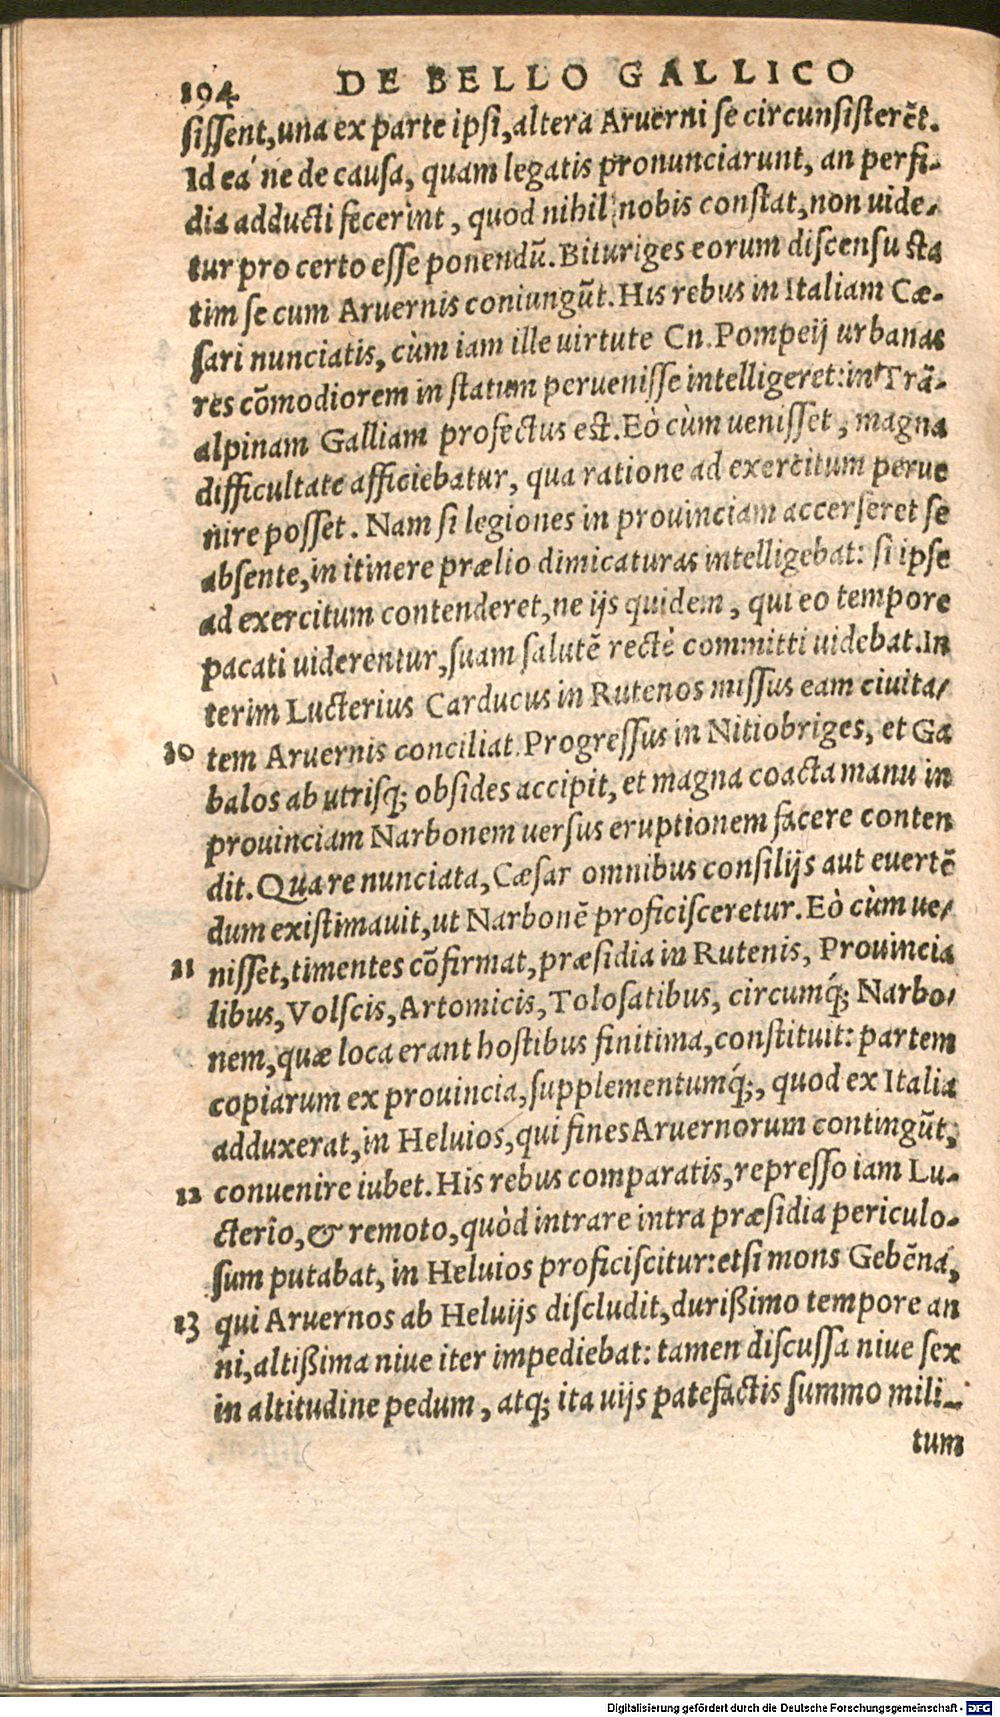 194 DE BELLO GALLICO
sissent,una ex parte ipsi,altera Aruerni se circunsisterēt.
Id ea' ne de causa, quam legatis pronunciarunt, an perfi-
dia adducti fecerint, quod nihil nobis constat,non uide-
tur pro certo esse ponendū. Bituriges eorum discensu sta
tim se cum Aruernis coniungūt. His rebus in Italiam Cæ-
sari nunciatis, cùm iam ille uirtute Cn. Pompeij urbanas
res cōmodiorem in statum peruenisse intelligeret: in Trā-
alpinam Galliam profectus est. Eò cùm uenisset, magna
difficultate afficiebatur, qua ratione ad exercitum perue
nire posset. Nam si legiones in prouinciam accerseret se
absente,in itinere prælio dimicaturas intelligebat: si ipse
ad exercitum contenderet,ne ijs quidem, qui eo tempore
pacati uiderentur,suam salutē rectè committi uidebat. In
terim Lucterius Carducus in Rutenos missus eam ciuita/
20 tem Aruernis conciliat. Progressus in Nitiobriges, et Ga
balos ab utrisq; obsides accipit, et magna coacta manu in
prouinciam Narbonem uersus eruptionem facere conten
dit. Qua re nunciata, Cæsar omnibus consilijs aut euertē
dum existimauit,ut Narbonē proficisceretur. Eò cùm ue/
21 nisset,timentes cōfirmat,præsidia in Rutenis, Prouincia
libus,Volscis,Artomicis,Tolosatibus, circumq́; Narbo/
nem,quæ loca erant hostibus finitima,constituit: partem
copiarum ex prouincia,supplementumq́;, quod ex Italia
adduxerat,in Heluios,qui fines Aruernorum contingūt,
22 conuenire iubet. His rebus comparatis,represso iam Lu-
cterio,& remoto,quòd intrare intra præsidia periculo-
sum putabat, in Heluios proficiscitur: etsi mons Gebēna,
23 qui Aruernos ab Heluijs discludit,durißimo tempore an
ni,altißima niue iter impediebat: tamen discussa niue sex
in altitudine pedum, atq; ita uijs patefactis summo mili-
tum
Digitalisierung gefördert durch die Deutsche Forschungsgemeinschaft - DFG